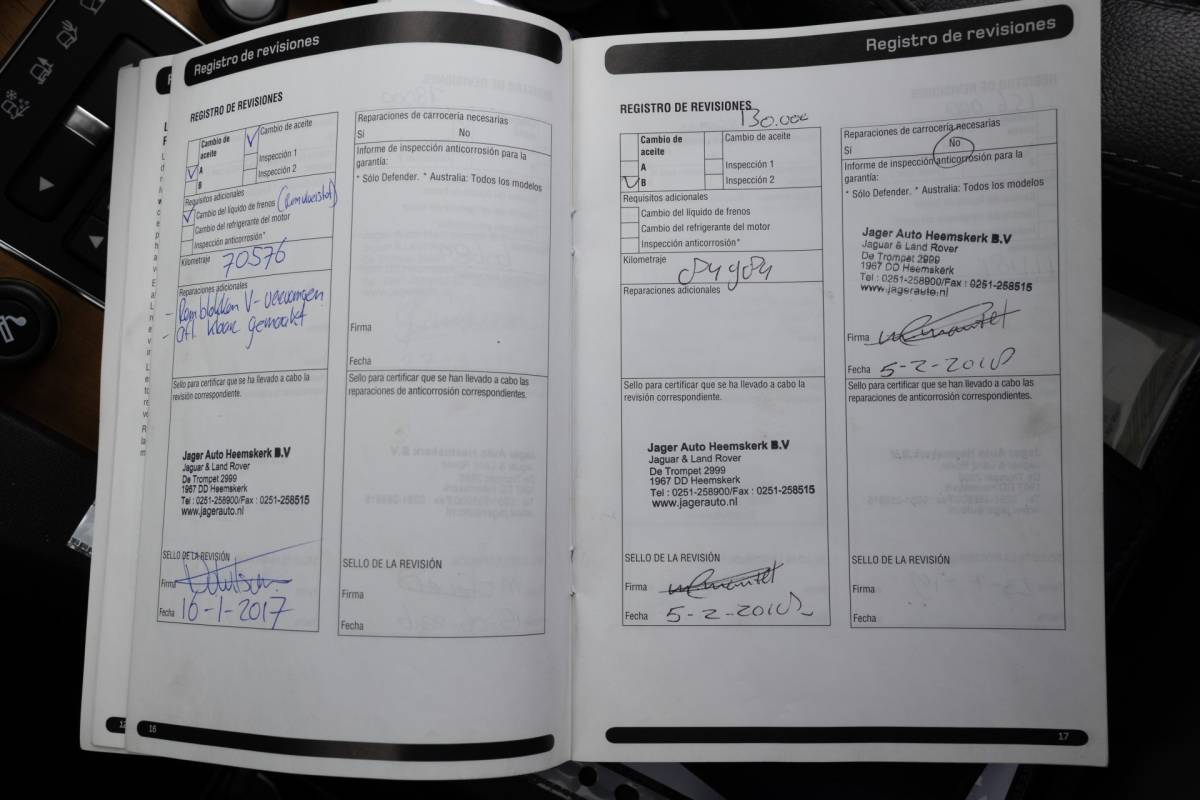 Registro de revisiones
REGISTRO DE REVISIONES
Cambio de
aceite
A
B
Cambio de aceite
Inspección 1
Inspección 2
Requisitos adicionales
Cambio del líquido de frenos (Remvloeistof)
Cambio del refrigerante del motor
Inspección anticorrosión*
Kilometraje
70576
Reparaciones adicionales
- Remblokken V-vervangen
- Afl. klaar gemaakt
Sello para certificar que se ha llevado a cabo la
revisión correspondiente.
Jager Auto Heemskerk B.V
Jaguar & Land Rover
De Trompet 2999
1967 DD Heemskerk
Tel : 0251-258900/Fax : 0251-258515
www.jagerauto.nl
SELLO DE LA REVISIÓN
Firma
Fecha 16-1-2017
Reparaciones de carrocería necesarias
Sí No
Informe de inspección anticorrosión para la
garantía:
* Sólo Defender. * Australia: Todos los modelos
Firma
Fecha
Sello para certificar que se han llevado a cabo las
reparaciones de anticorrosión correspondientes.
SELLO DE LA REVISIÓN
Firma
Fecha
16
Registro de revisiones
REGISTRO DE REVISIONES
130.000
Cambio de
aceite
A
B
Cambio de aceite
Inspección 1
Inspección 2
Requisitos adicionales
Cambio del líquido de frenos
Cambio del refrigerante del motor
Inspección anticorrosión*
Kilometraje
84984
Reparaciones adicionales
Sello para certificar que se ha llevado a cabo la
revisión correspondiente.
Jager Auto Heemskerk B.V
Jaguar & Land Rover
De Trompet 2999
1967 DD Heemskerk
Tel : 0251-258900/Fax : 0251-258515
www.jagerauto.nl
SELLO DE LA REVISIÓN
Firma
Fecha 5-2-2018
Reparaciones de carrocería necesarias
Sí No
Informe de inspección anticorrosión para la
garantía:
* Sólo Defender. * Australia: Todos los modelos
Jager Auto Heemskerk B.V
Jaguar & Land Rover
De Trompet 2999
1967 DD Heemskerk
Tel : 0251-258900/Fax : 0251-258515
www.jagerauto.nl
Firma
Fecha 5-2-2018
Sello para certificar que se han llevado a cabo las
reparaciones de anticorrosión correspondientes.
SELLO DE LA REVISIÓN
Firma
Fecha
17